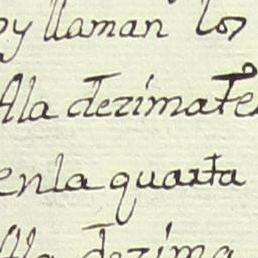 y llaman los
Ala dezimate
enla quarta
Ala dezima